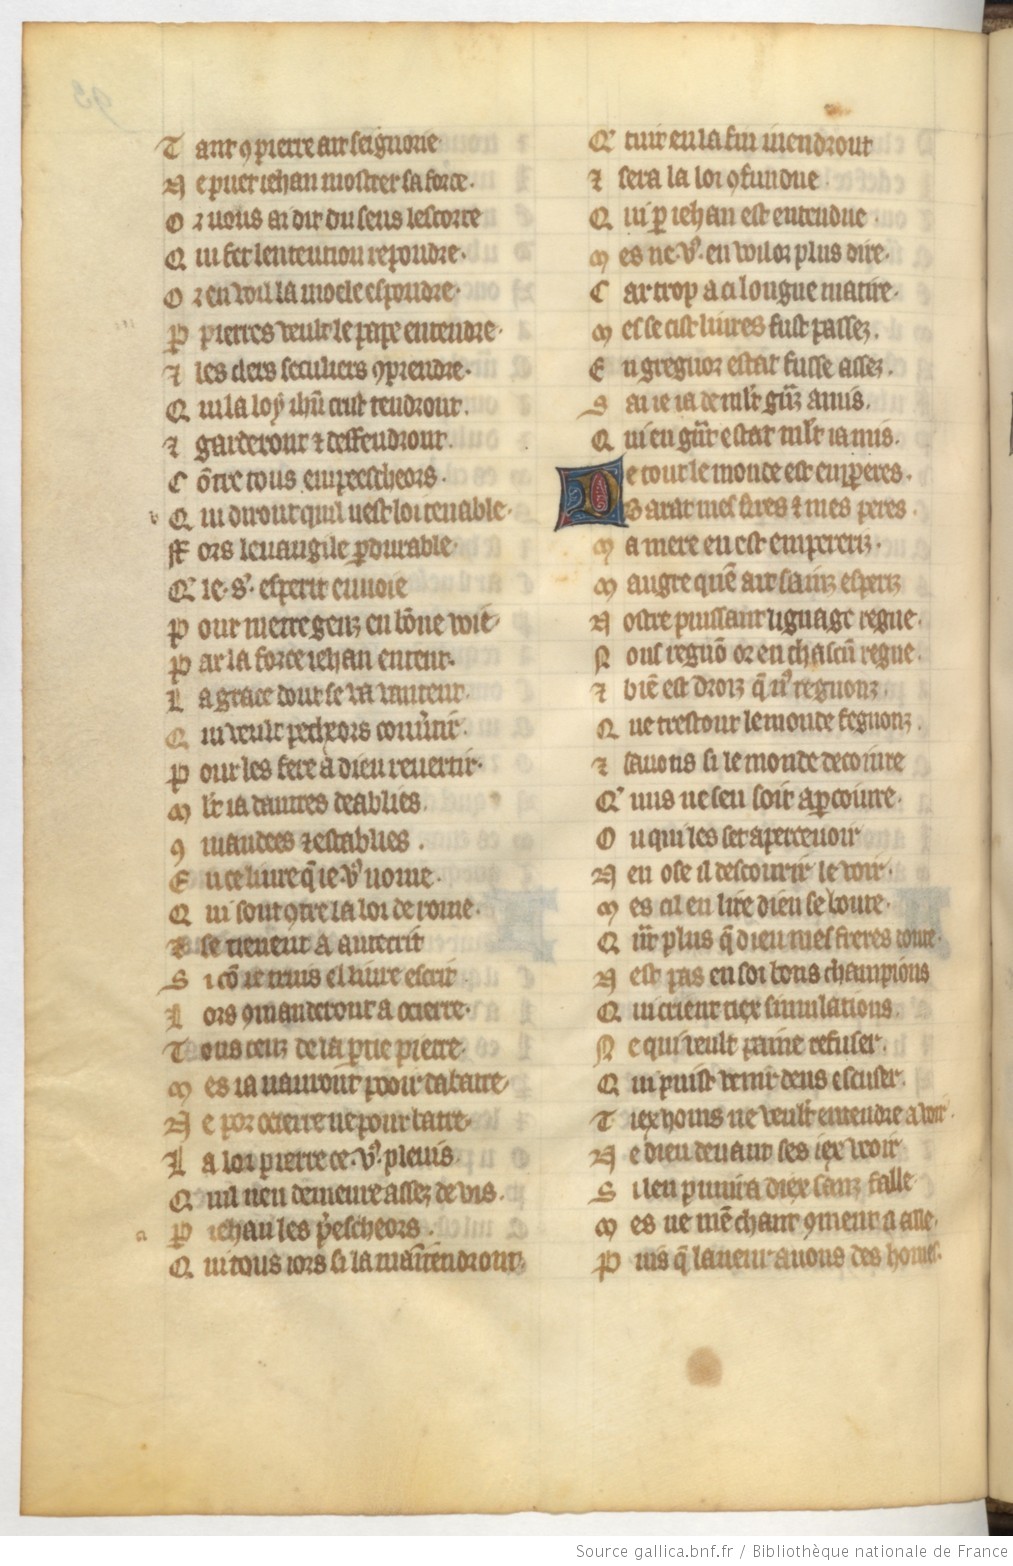 Tant ꝯ pierre ait seignorie
Ne puet iehan mostrer sa force.
Or vous ai dit du sens lescorce
Qui fet lentencion repondre.
Or en vuil la moele espondre.
P pierres veult le pape entendre.
⁊ les clers seculiers ꝯprendre.
Qui la loy ihũ crist tendront.
⁊ garderont ⁊ deffendront.
Cõtre tous empeescheors.
Qui diront quil nest loi tenable.
Fors leuangile ꝑdurable
Q' le .s'. esperit enuoie
Pour metre genz en bõne voie.
Par la force iehan entent.
La grace dont se va vantent.
Qui veult pecheors conũtir.
Pour les fere a dieu reuertir.
Mlt ia dautres deablies.
ꝯmandees ⁊ establies.
En ce liure q̃ ie .v'. nome.
Qui sont ꝯtre la loi de rome.
⁊ se tienent a antecrit
Si cõ ie truis el liure escrit.
Lors ꝯmanderont a ocierre.
Tous ceuz de la ꝑtie pierre.
Mes ia nauront pooir dabatre.
Ne por ocierre ne pour batre.
La loi pierre ce .v'. pleuis.
Quil nen demeure assez de vis.
Qui tous iors si la maĩtendront.
Q' tuit en la fin uiendront
⁊ sera la loi ꝯfundue
Qui ꝑ iehan est entendue.
Mes ne .v'. en vuil or plus dire.
Car trop a ci longue matire.
Mes se cist liures fust passez.
En gregnor estat fusse assez.
Sai ie ia de mlt gñz amis.
Qui en gñt estat mlt ia mis.
De tout le monde est empẽres.
Barat mes sires ⁊ mes peres.
Ma mere en est empereriz.
Maugre quẽ ait sainz esperiz
Nostre puissant lignage regne.
Nous regnõ or en chascũ regne.
⁊ biẽ est droiz q̃ n'. regnonz.
Que trestout le monde fegnonz.
⁊ sauons si le monde deceuire
Q' nus ne sen soit aꝑceuire.
Ou qui les set aperceuoir
Nen ose il descourir le voir.
Mes cil en lire dieu se boute.
Qñt plus q̃ dieu mes freres doute.
Nest pas en foi bons champions
Qui crient tiex simulations.
Ne qui veult paine refuser.
Qui puist venir dens encuser.
Tiex homs ne veult entendre a voir.
Ne dieu deuant ses iex veoir
Si len punira diex sanz falle
Mes ne mẽ chaut ꝯment il alle.
Puis q̃ lanenir auons des homes.